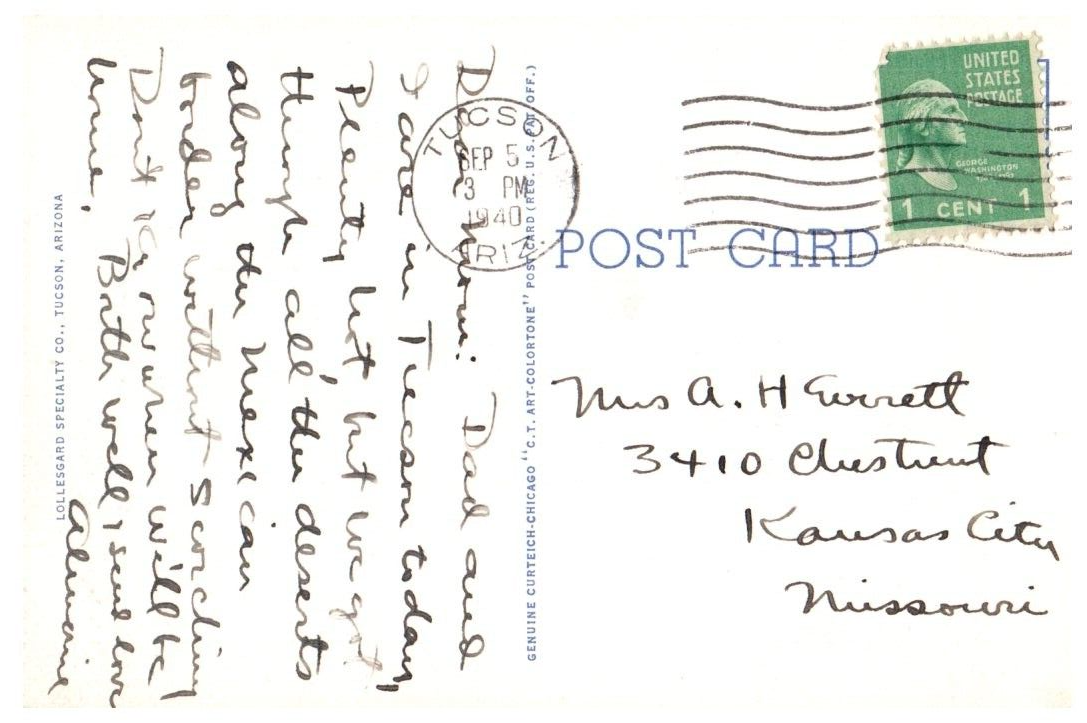 Dear Mom: Dad and
I are in Tucson today,
Plenty hot but we got
through all the deserts
along the Mexican
border without scorching
Don't know when will be
home.
Both well & send love
Almarine
LOLLESGARD SPECIALTY CO., TUCSON, ARIZONA
GENUINE CURTEICH-CHICAGO "C.T. ART-COLORTONE" POST CARD (REG. U.S. PAT. OFF.)
TUCSON
SEP 5
3 PM
1940
ARIZ.
UNITED
STATES
POSTAGE
GEORGE
WASHINGTON
1 CENT 1
POST CARD
Mrs A. H Everett
3410 Chestnut
Kansas City
Missouri